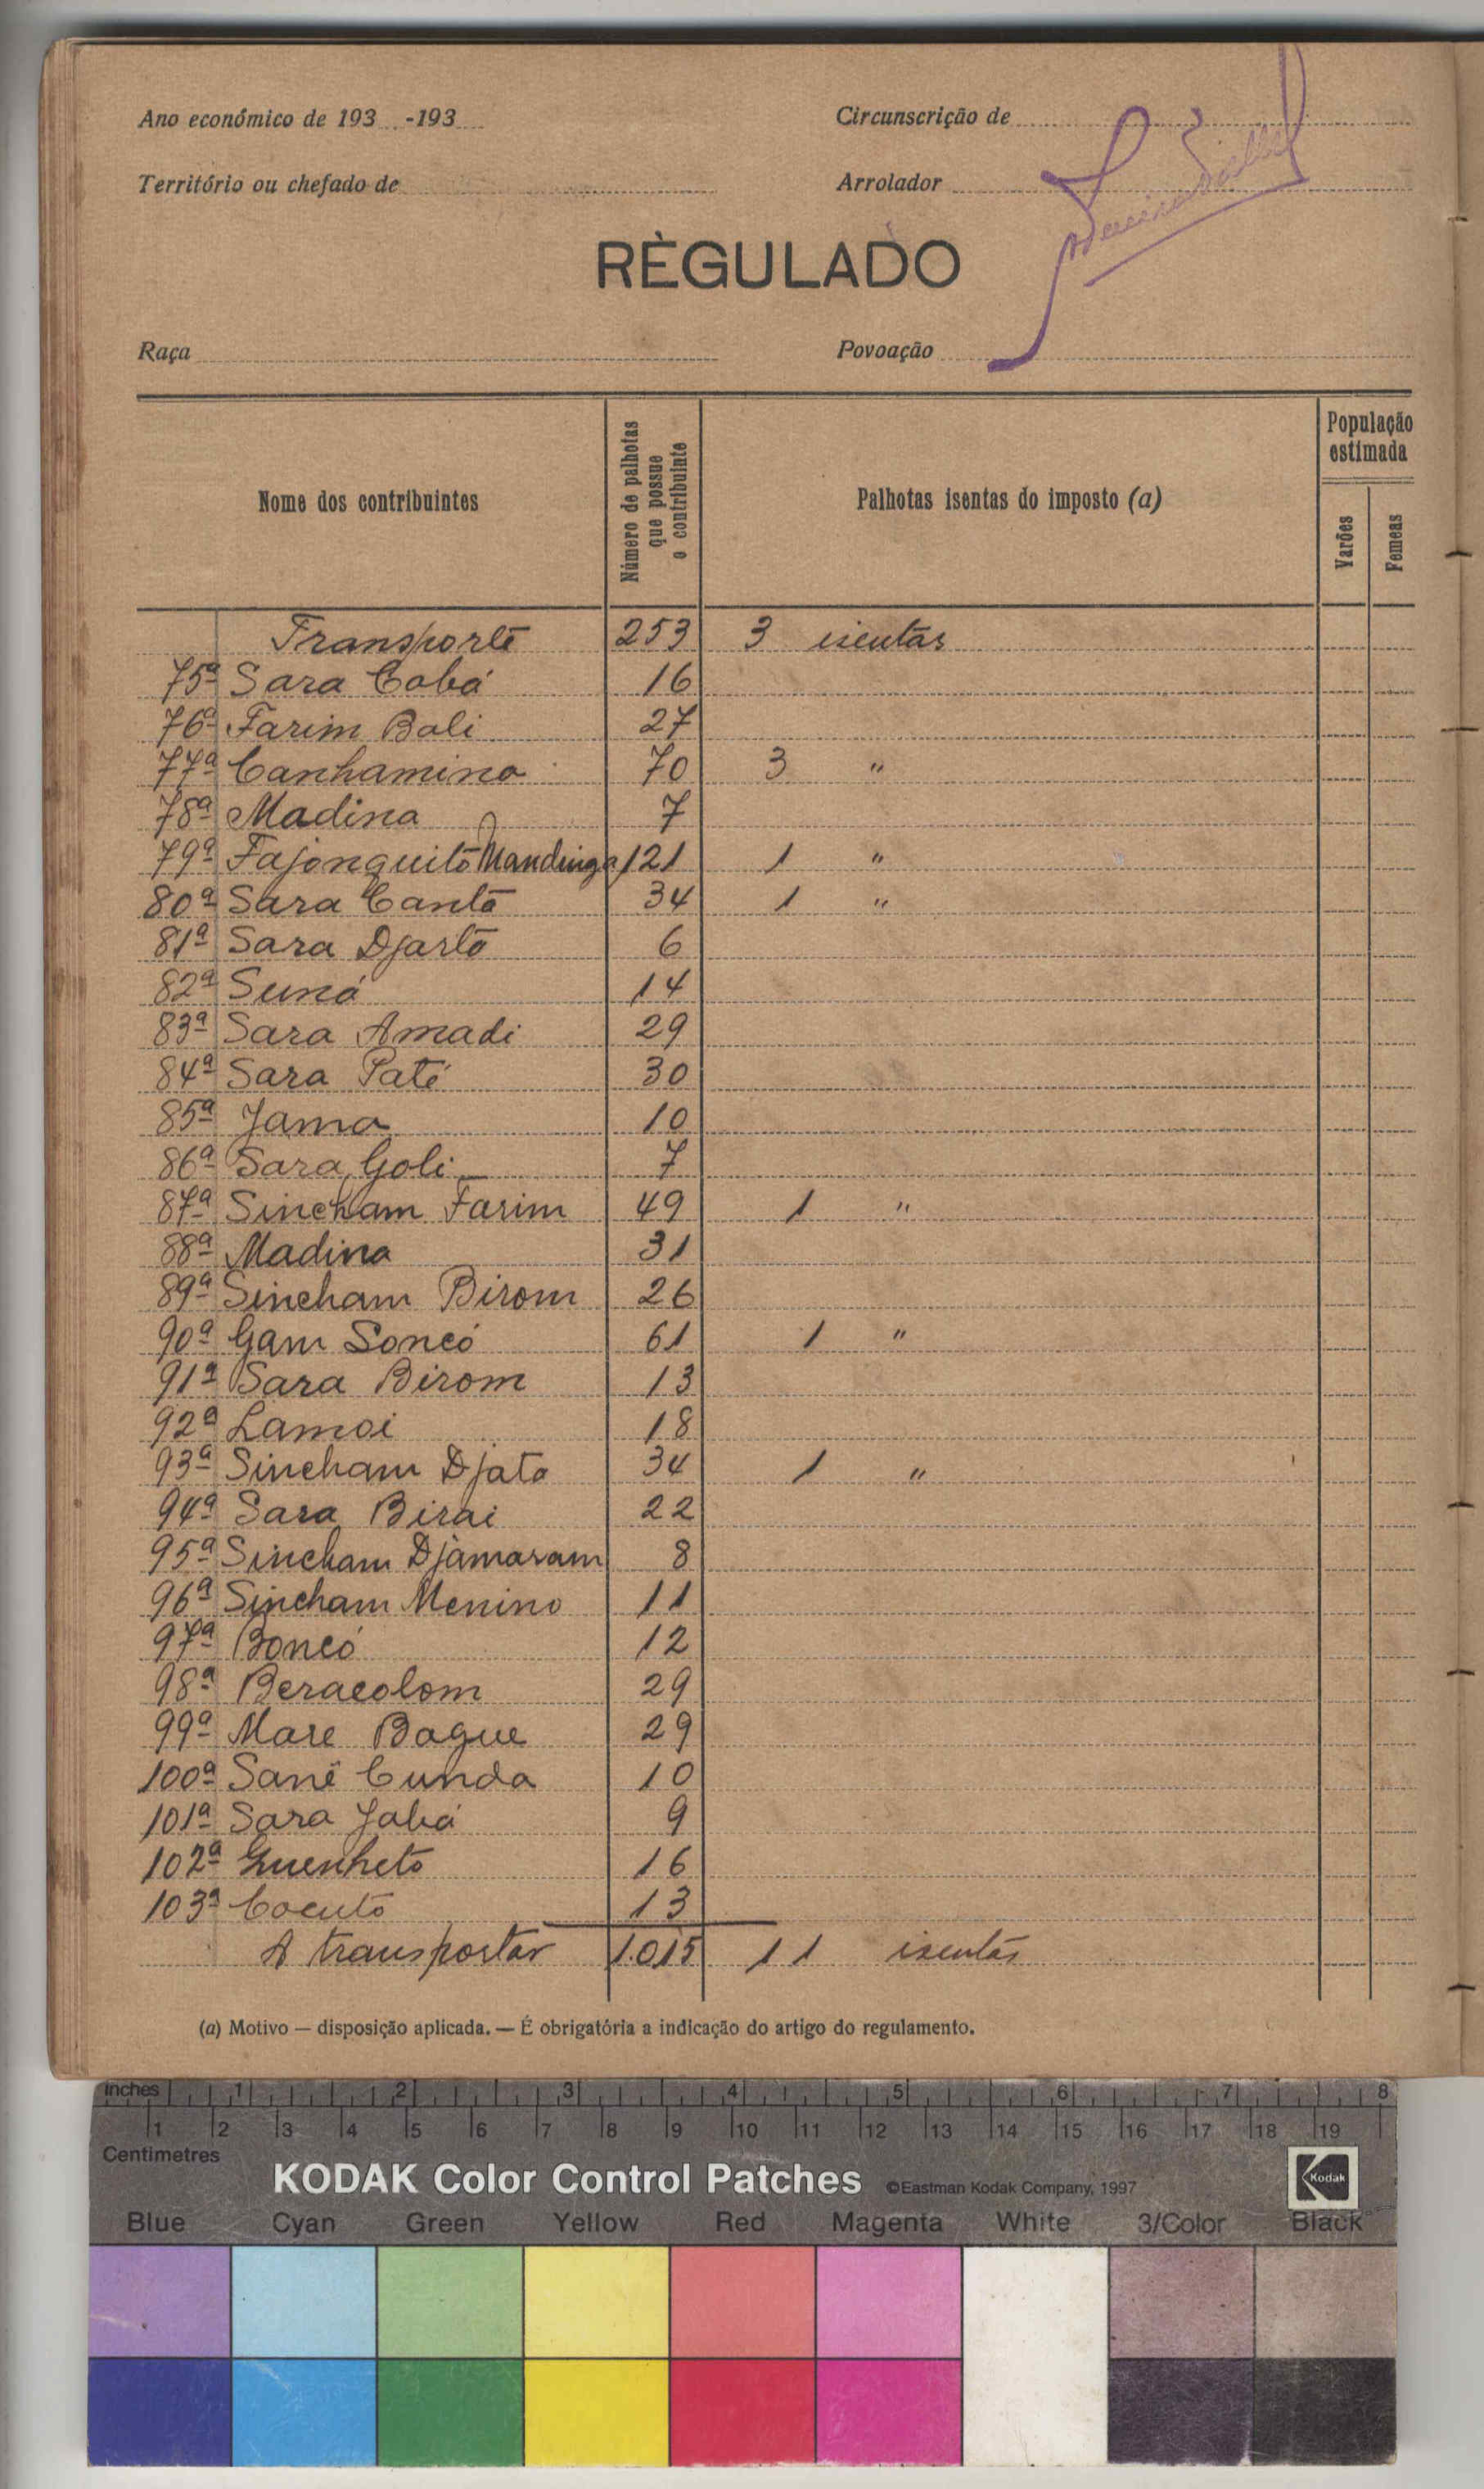 Ano económico de 193 -193
Circunscrição de
Território ou chefado de
Arrolador
RÈGULADO
Raça
Povoação
Nome dos contribuintes
Número de palhotas que possue o contribuinte
Palhotas isentas do imposto (a)
População estimada
Varões
Femeas
Transporte 253 3 isentas
75ª Sara Cobá 16
76ª Farim Bali 27
77ª Canhamina 70 3 "
78ª Madina 7
79ª Fajonquitō Mandinga 121 1 "
80ª Sara Cantō 34 1 "
81ª Sara Djartō 6
82ª Suná 14
83ª Sara Amadi 29
84ª Sara Paté 30
85ª Jama 10
86ª Sara Goli 7
87ª Sincham Farim 49 1 "
88ª Madina 31
89ª Sincham Birom 26
90ª Gam Soncó 61 1 "
91ª Sara Birom 13
92ª Lamoi 18
93ª Sincham Djata 34 1 "
94ª Sara Birai 22
95ª Sincham Djámaram 8
96ª Sincham Menino 11
97ª Boncó 12
98ª Beracolom 29
99ª Mare Bague 29
100ª Sané Cunda 10
101ª Sara Jabá 9
102ª Guenheto 16
103ª Cocuto 13
A transportar 1.015 11 isentas
(a) Motivo — disposição aplicada. — É obrigatória a indicação do artigo do regulamento.
Inches 1 2 3 4 5 6 7 8
1 2 3 4 5 6 7 8 9 10 11 12 13 14 15 16 17 18 19
Centimetres
KODAK Color Control Patches ©Eastman Kodak Company, 1997 Kodak
Blue Cyan Green Yellow Red Magenta White 3/Color Black